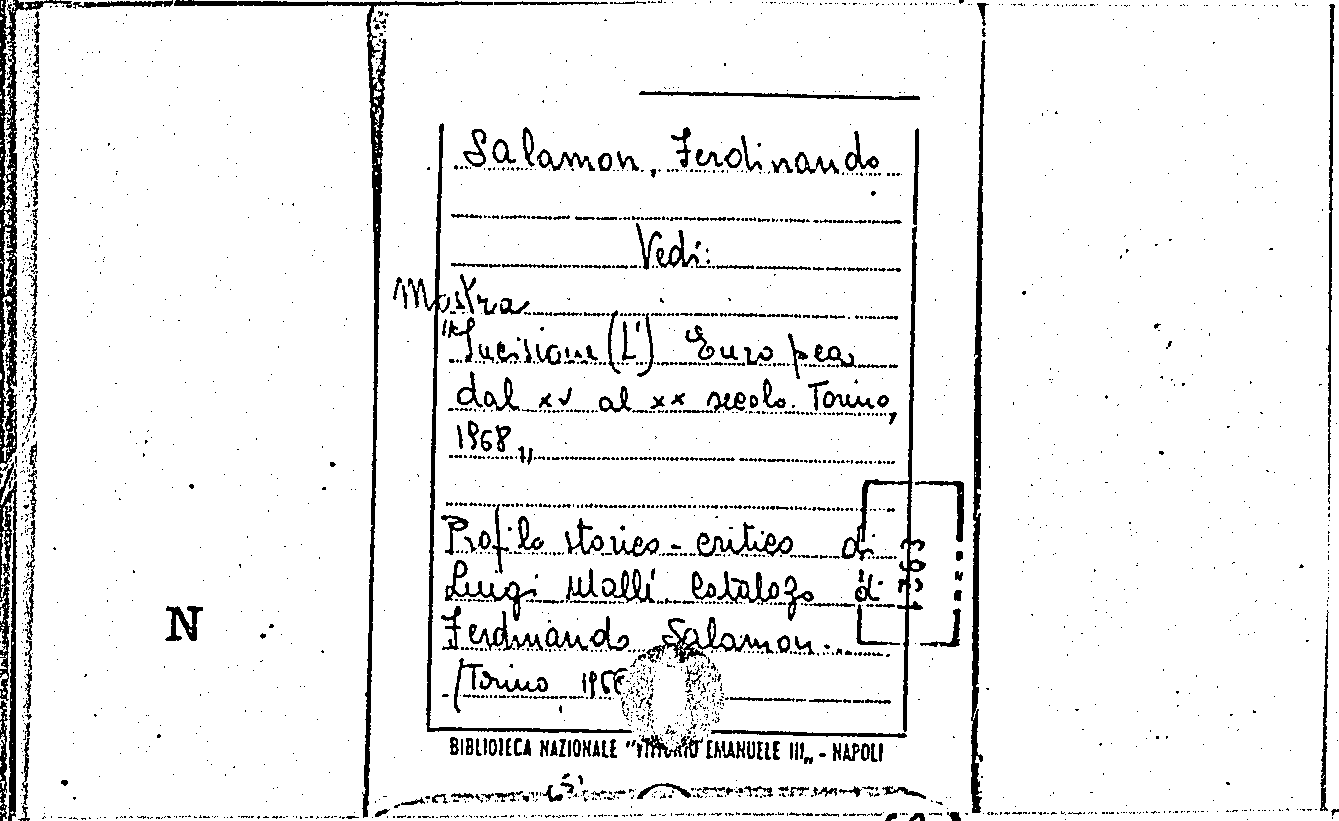 Salamon, Ferdinando
Vedi:
Mostra
"Incisione (L') Europea
dal XV al XX secolo. Torino,
1968"
Profilo storico-critico di
Luigi Mallé. Catalogo di
Ferdinando Salamon...
(Torino, 196
BIBLIOTECA NAZIONALE "VITTORIO EMANUELE III" - NAPOLI
N